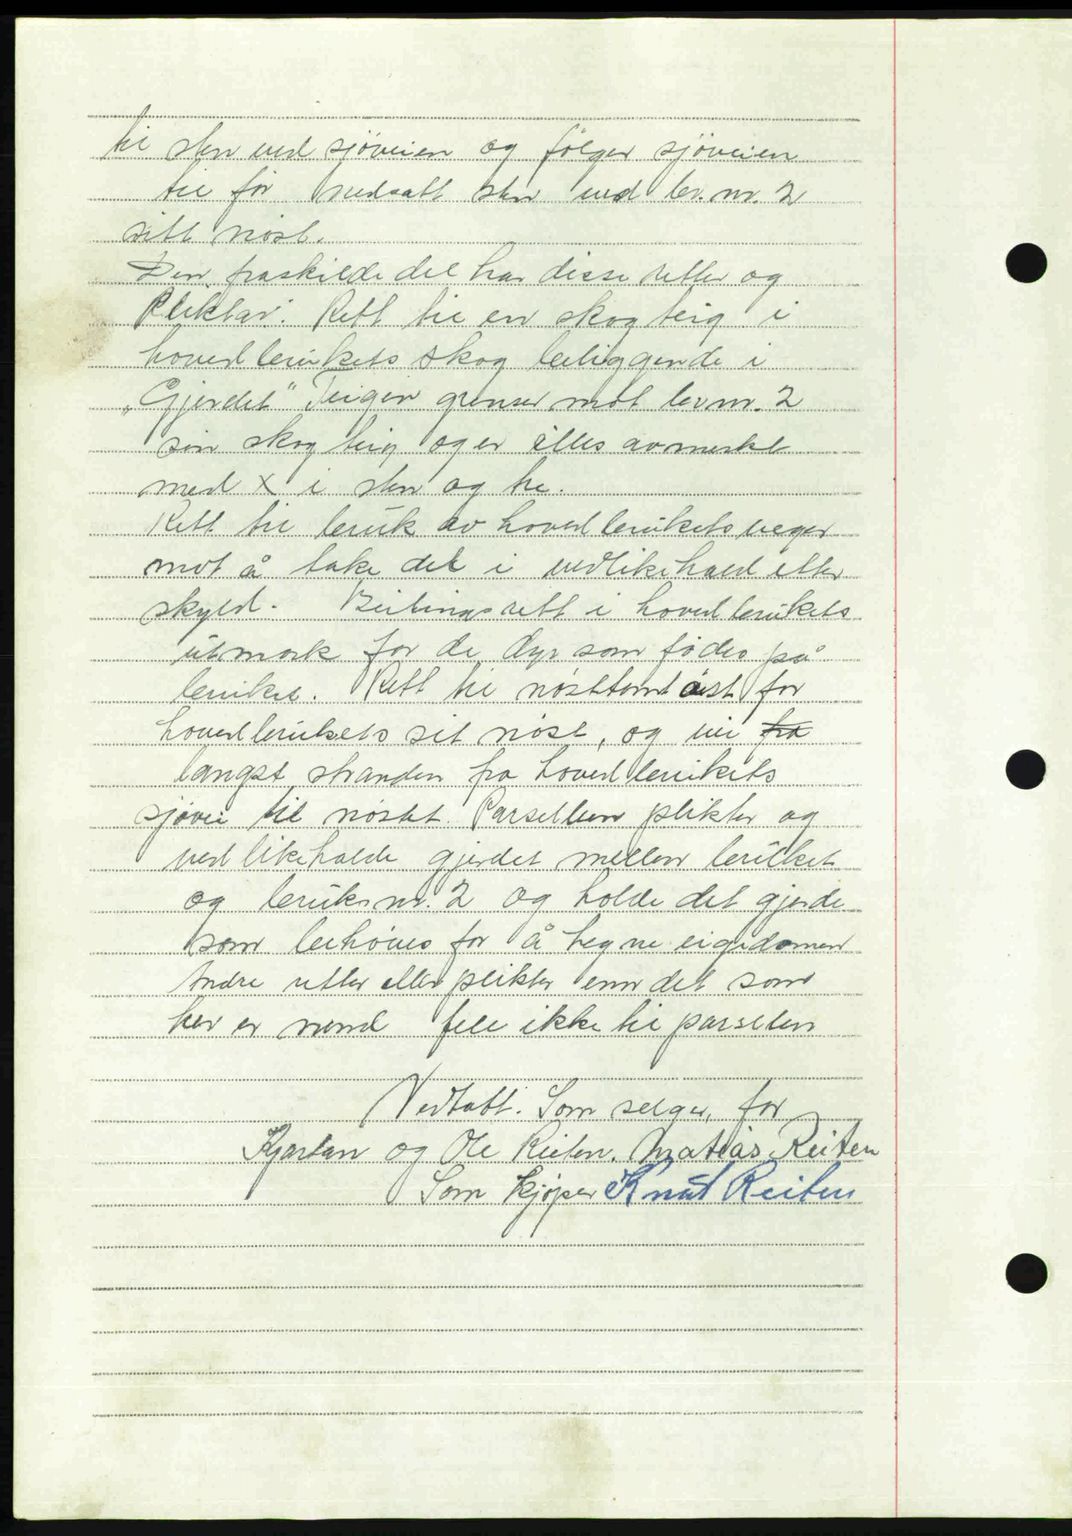 til sten ved sjöveien og fölger sjöveien
til för nedsatt sten ved br.nr. 2
sitt nöst.
Den fraskilde del har disse retter og
Plikter: Rett til en skogteig i
hovedbrukets skog beliggende i
"Gjerdet" Teigen grenser mot br.nr. 2
sin skogteig og er elles avmerkt
med X i sten og tre.
Rett til bruk av hovedbrukets veger
mot å take del i vedlikehald etter
skyld. Beitingsrett i hovedbrukets
utmark for de dyr som födes på
bruket. Rett til nösttomt öst for
hovedbrukets sit nöst, og vei fra
langst stranden fra hovedbrukets
sjövei til nöstet. Parsellen plikter og
vedlikeholde gjerdet mellem bruket
og bruksnr. 2 og holde det gjerde
som behöves for å hegne eigedomen
Andre retter eller plikter enn det som
her er nemd fell ikke til parsellen
Vedtatt. Som selger, for
Kjartan og Ole Reiten. Matias Reiten
Som kjöper Knut Reiten